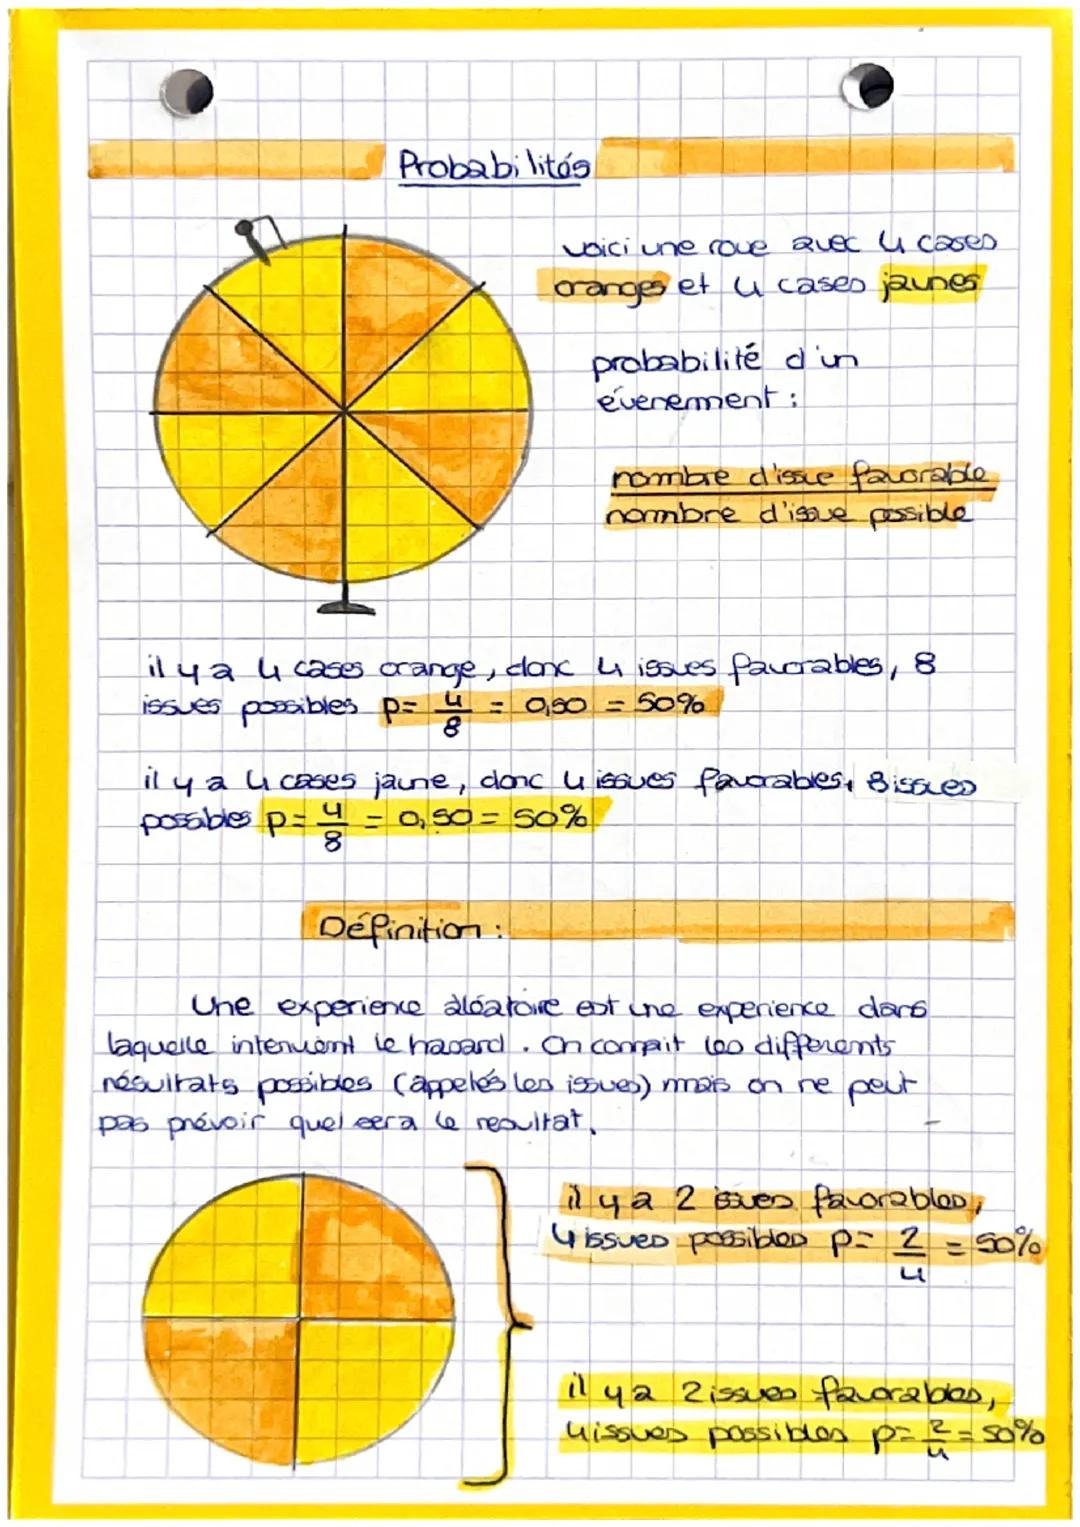 Probabilités
voici une roue avec 4 cases
oranges et 4 cases jaunes
probabilité d'un
évenement :
nombre d'issue favorable
nombre d'issue possible
il y a 4 cases orange, donc 4 issues favorables, 8
issues possibles p = 4/8 = 0,50 = 50%
il y a 4 cases jaune, donc 4 issues favorables, 8 issues
possibles p = 4/8 = 0,50 = 50%
Définition :
Une experience aléatoire est une experience dans
laquelle intervient le hasard. On connait les différents
résultats possibles (appelés les issues) mais on ne peut
pas prévoir quel sera le resultat.
il y a 2 issues favorables,
4 issues possibles p = 2/4 = 50%
il y a 2 issues favorables,
4 issues possibles p = 2/4 = 50%